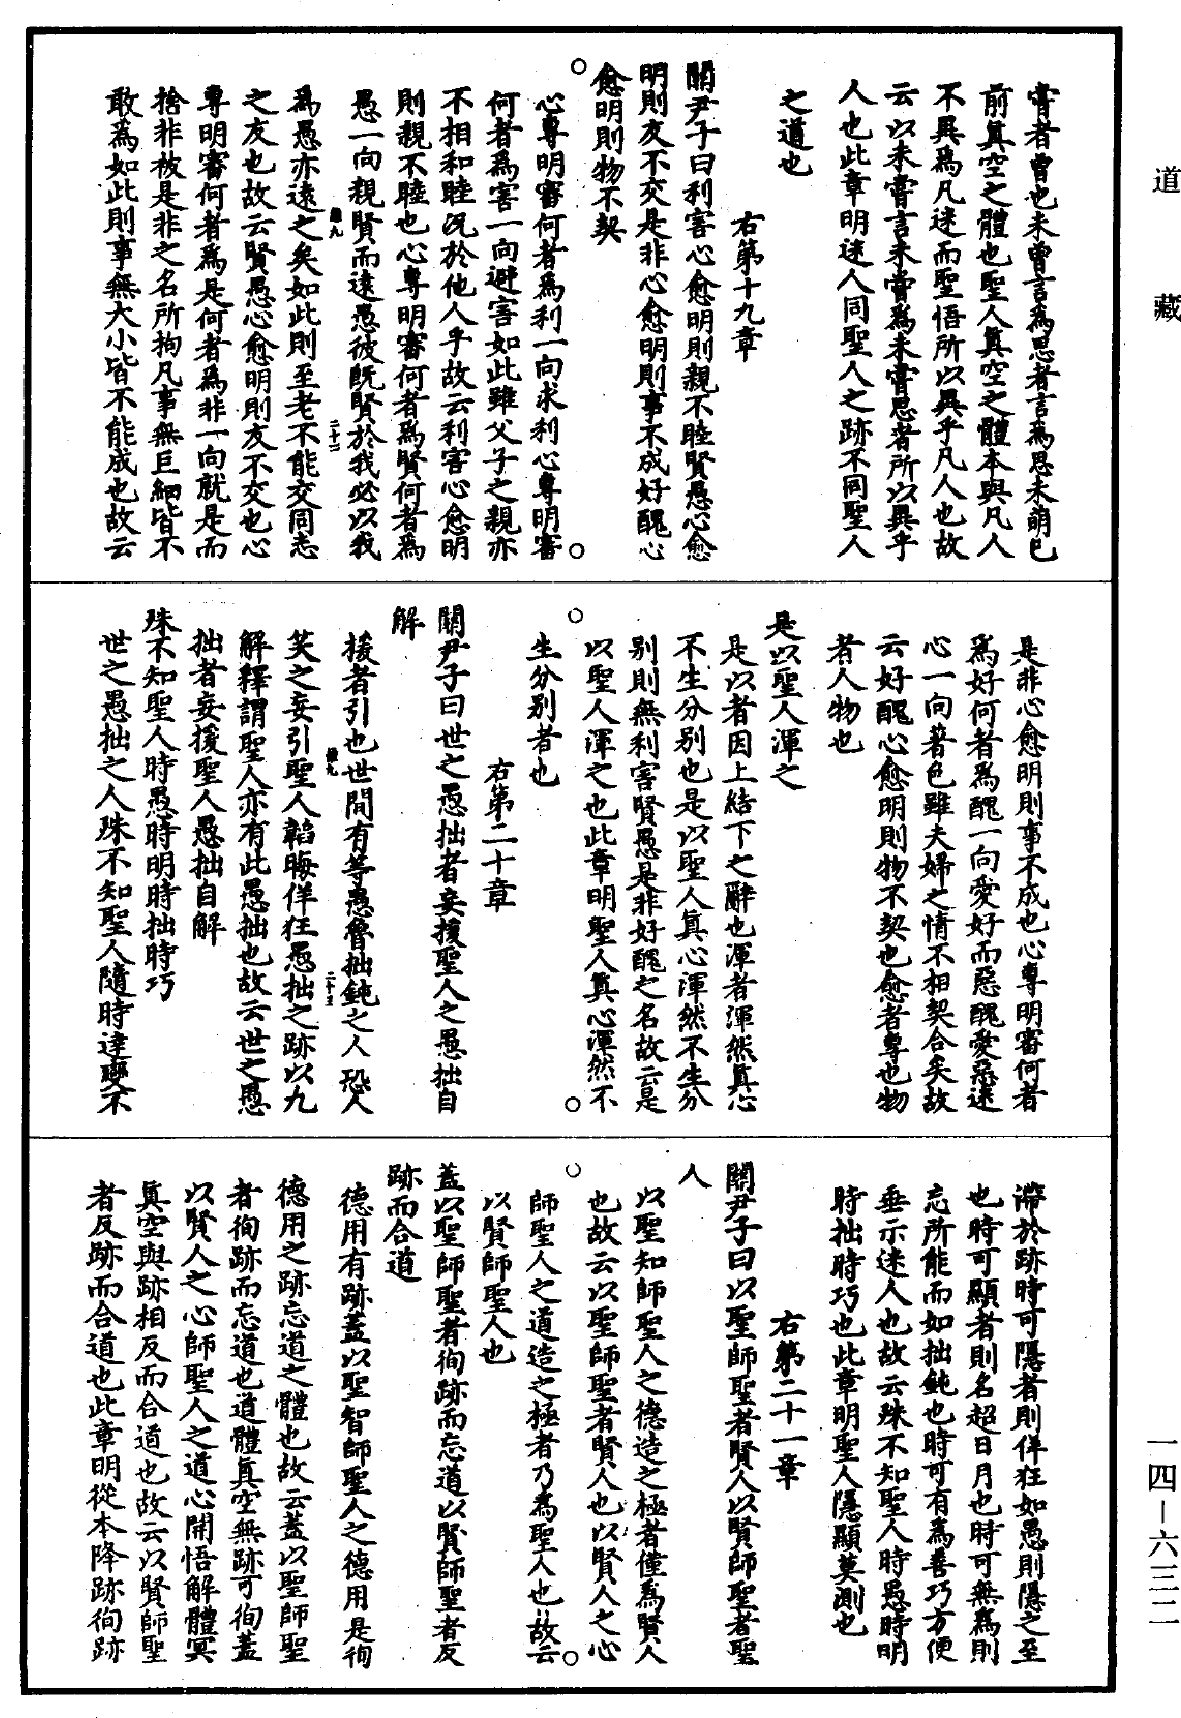 道藏
嘗者曾也未曾言為思者言為思未萌已
前真空之體也聖人真空之體本與凡人
不異為凡迷而聖悟所以異乎凡人也故
云以未嘗言未嘗為未嘗思者所以異乎
人也此章明迷人同聖人之跡不同聖人
之道也
右第十九章
關尹子曰利害心愈明則親不睦賢愚心愈
明則友不交是非心愈明則事不成好醜心
愈明則物不契
心專明審何者為利一向求利心專明審
何者為害一向避害如此雖父子之親亦
不相和睦況於他人乎故云利害心愈明
則親不睦也心專明審何者為賢何者為
愚一向親賢而遠愚彼既賢於我必以我
為愚亦遠之矣如此則至老不能交同志
之友也故云賢愚心愈明則友不交也心
專明審何者為是何者為非一向就是而
捨非被是非之名所拘凡事無巨細皆不
敢為如此則事無大小皆不能成也故云
是非心愈明則事不成也心專明審何者
為好何者為醜一向愛好而惡醜愛惡迷
心一向著色雖夫婦之情不相契合矣故
云好醜心愈明則物不契也愈者專也物
者人物也
是以聖人渾之
是以者因上結下之辭也渾者渾然真心
不生分別也是以聖人真心渾然不生分
別則無利害賢愚是非好醜之名故云是
以聖人渾之也此章明聖人真心渾然不
生分別者也
右第二十章
關尹子曰世之愚拙者妄援聖人之愚拙自
解
援者引也世間有等愚魯拙鈍之人恐人
笑之妄引聖人韜晦佯狂愚拙之跡以九
解釋謂聖人亦有此愚拙也故云世之愚
拙者妄援聖人愚拙自解
殊不知聖人時愚時明時拙時巧
世之愚拙之人殊不知聖人隨時達變不
滯於跡時可隱者則佯狂如愚則隱之至
也時可顯者則名超日月也時可無為則
忘所能而如拙鈍也時可有為善巧方便
垂示迷人也故云殊不知聖人時愚時明
時拙時巧也此章明聖人隱顯莫測也
右第二十一章
關尹子曰以聖師聖者賢人以賢師聖者聖
人
以聖知師聖人之德造之極者僅為賢人
也故云以聖師聖者賢人也以賢人之心
師聖人之道造之極者乃為聖人也故云
以賢師聖人也
蓋以聖師聖者徇跡而忘道以賢師聖者反
跡而合道
德用有跡蓋以聖智師聖人之德用是徇
德用之跡忘道之體也故云蓋以聖師聖
者徇跡而忘道也道體真空無跡可徇蓋
以賢人之心師聖人之道心開悟解體冥
真空與跡相反而合道也故云以賢師聖
者反跡而合道也此章明從本降跡徇跡
一四—六三二